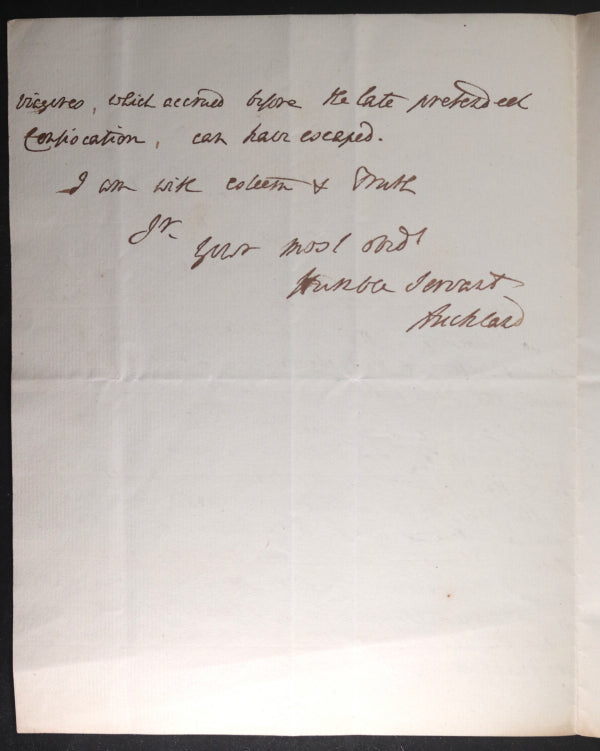 viagères, which accrued before the late pretended
Confiscation, can have escaped.
I am with esteem & Truth
Sr.
Your most obdt
Humble Servant
Auckland